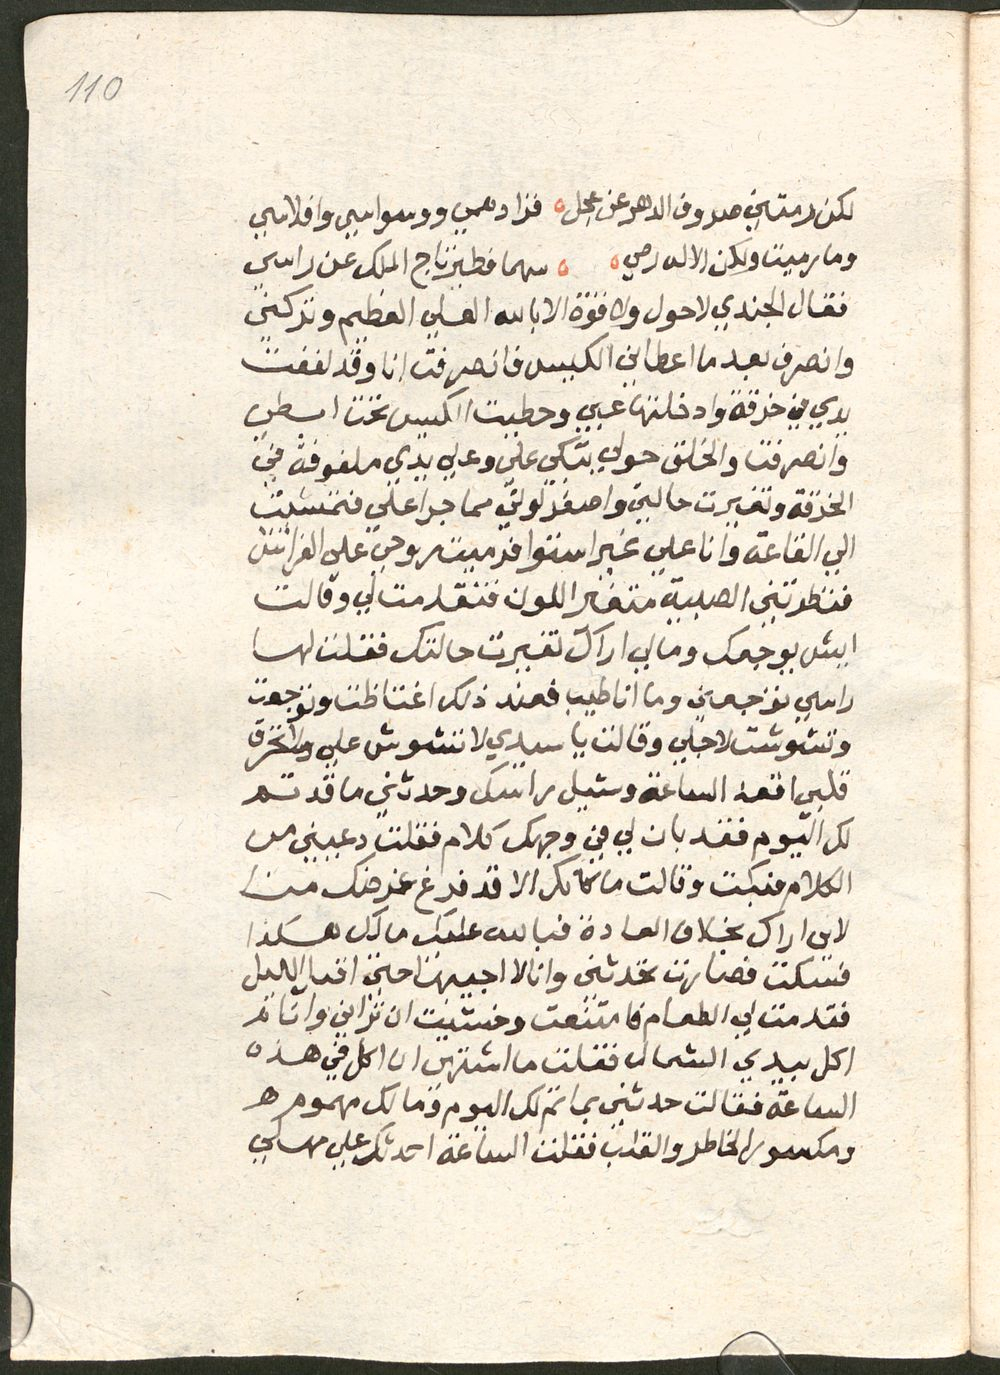 110
لكن رمتني صروف الدهر عن عجل ٥ فزاد همي ووسواسي وافلاسي
وما رميت ولكن الاله رمي ٥ ٥ سهما فطير تاج الملك عن راسي
فقال الجندي لاحول ولا قوة الا بالله العلي العظيم وتركني
وانصرف بعد ما اعطاني الكيس فانصرفت انا وقد لففت
يدي في خرقة وادخلتها عبي وحطيت الكيس تحت ابطي
وانصرفت والخلق حولي تبكي علي وعلي يدي ملفوفة في
الخرقة وتغيرت حالتي واصفر لوني مما جرا علي فتمشيت
الي القاعة وانا علي غير استوا فرميت روحي علي الفراش
فنظرتني الصبية متغير اللون فتقدمت لي وقالت
ايش يوجعك ومالي اراك تغيرت حالتك فقلت لها
راسي توجعني وما انا طيب فعند ذلك اغتاظت وتوجعت
وتشوشت لاجلي وقالت يا سيدي لا تشوش علي ولا تحرق
قلبي اقعد الساعة وشيل راسك وحدثني ما قد تم
لك اليوم فقد بان لي في وجهك كلام فقلت دعيني من
الكلام فبكت وقالت ما كانك الا قد فرغ غرضك منا
لاني اراك بخلاف العادة فبالله عليك مالك هكذا
فسكت فصارت تحدثني وانا لا اجيبها حتي اقبل الليل
فقدمت لي الطعام فامتنعت وخشيت ان تراني وانا
اكل بيدي الشمال فقلت ما اشتهي ان اكل في هذه
الساعة فقالت حدثني بما تم لك اليوم ومالك مهموم
ومكسور الخاطر والقلب فقلت الساعة احدثك علي مهلكي